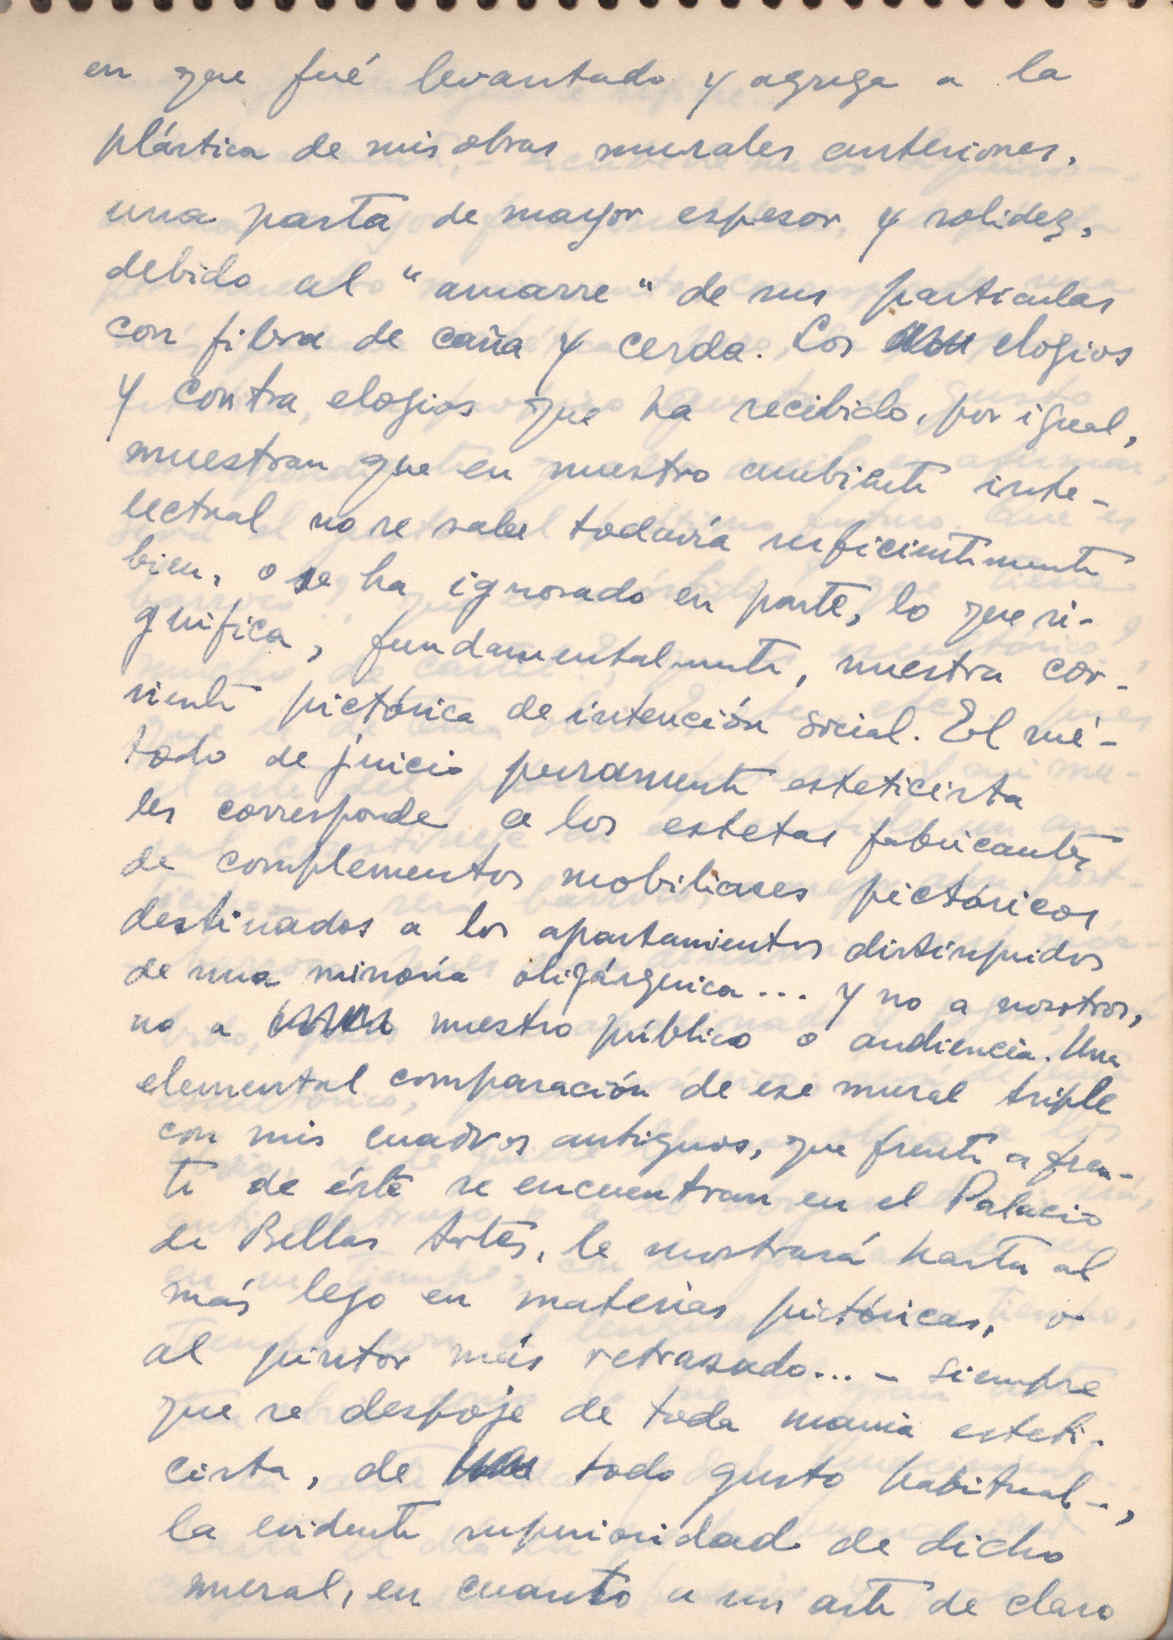 en que fué levantado y agrega a la
plástica de mis obras murales anteriores,
una pasta de mayor espesor y solidez,
debido al "amarre" de sus partículas
con fibra de caña y cerda. Los elogios
y contra elogios que ha recibido, por igual,
muestran que en nuestro ambiente inte-
lectual no se sabe todavía suficientemente
bien, o se ha ignorado en parte, lo que si-
gnifica, fundamentalmente, nuestra cor-
riente pictórica de intención social. El mé-
todo de juicio puramente esteticista
les corresponde a los estetas fabricantes
de complementos mobiliares pictóricos
destinados a los apartamientos distinguidos
de una minoría oligárquica... y no a nosotros,
no a nuestro público o audiencia. Una
elemental comparación de ese mural triple
con mis cuadros antiguos, que frente a fren-
te de éste se encuentran en el Palacio
de Bellas Artes, le mostrará hasta al
más lego en materias pictóricas, o
al pintor más retrasado... - siempre
que se despoje de toda mania esteti-
cista, de todo gusto habitual -,
la evidente superioridad de dicho
mural, en cuanto a un arte de claro